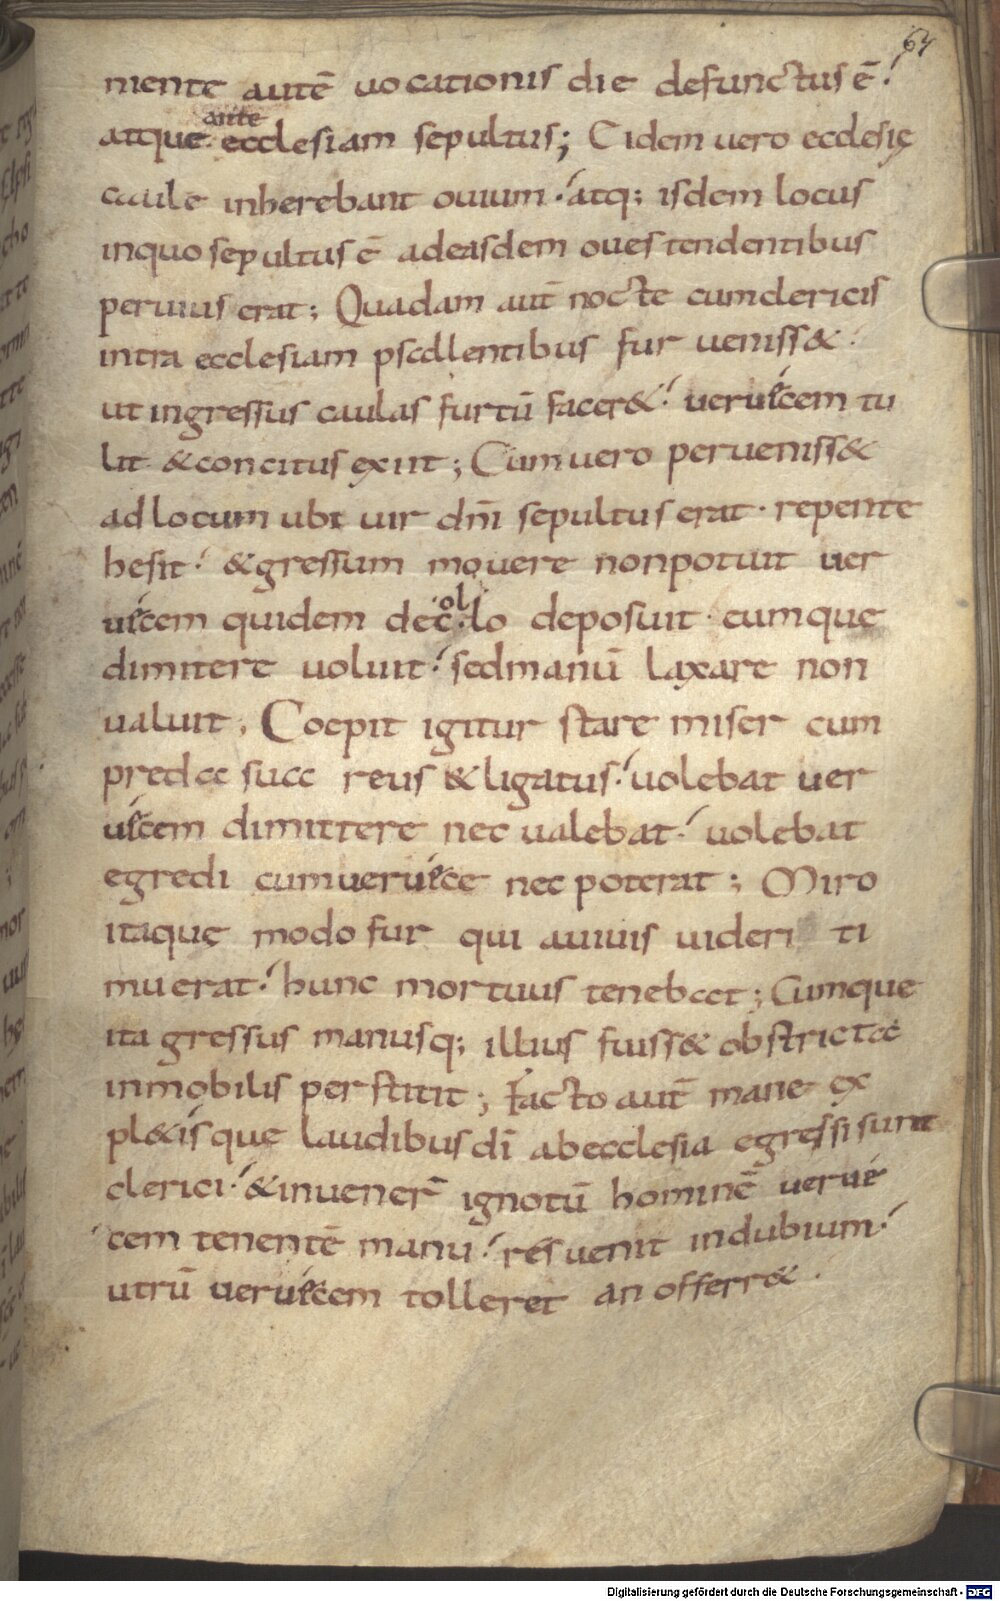 67
niente autē uocationis die defunctus ē
ante
atque ecclesiam sepultus; Eidem uero ecclesię
caule inherebant ouium · atq; isdem locus
inquo sepultus ē adeasdem oues tendentibus
peruius erat; Quadam aut̄ nocte cum clericis
intra ecclesiam psallentibus fur ueniss& ·
ut ingressus caulas furtū facer& ueruecem tu
lit & concitus exiit; Cum uero perueniss&
ad locum ubi uir dn̄i sepultus erat · repente
hesit · & gressum mouere non potuit uer
uecem quidem de collo deposuit · eumque
dimitere uoluit · sed manū laxare non
ualuit, Coepit igitur stare miser cum
preda sua reus & ligatus · uolebat uer
uecem dimittere nec ualebat · uolebat
egredi cum ueruece nec poterat; Miro
itaque modo fur qui auiuis uideri ti
muerat · hunc mortuus tenebat; Cumque
ita gressus manusq; illius fuiss& obstricta
inmobilis perstitit; Facto aut̄ mane ex
pl&isque laudibus dī abecclesia egressi sunt
clerici · & inuener̄ ignotū hominē uerue
cem tenentē manu · res uenit indubium ·
utrū ueruecem tolleret an offerr& ·
Digitalisierung gefördert durch die Deutsche Forschungsgemeinschaft - DFG